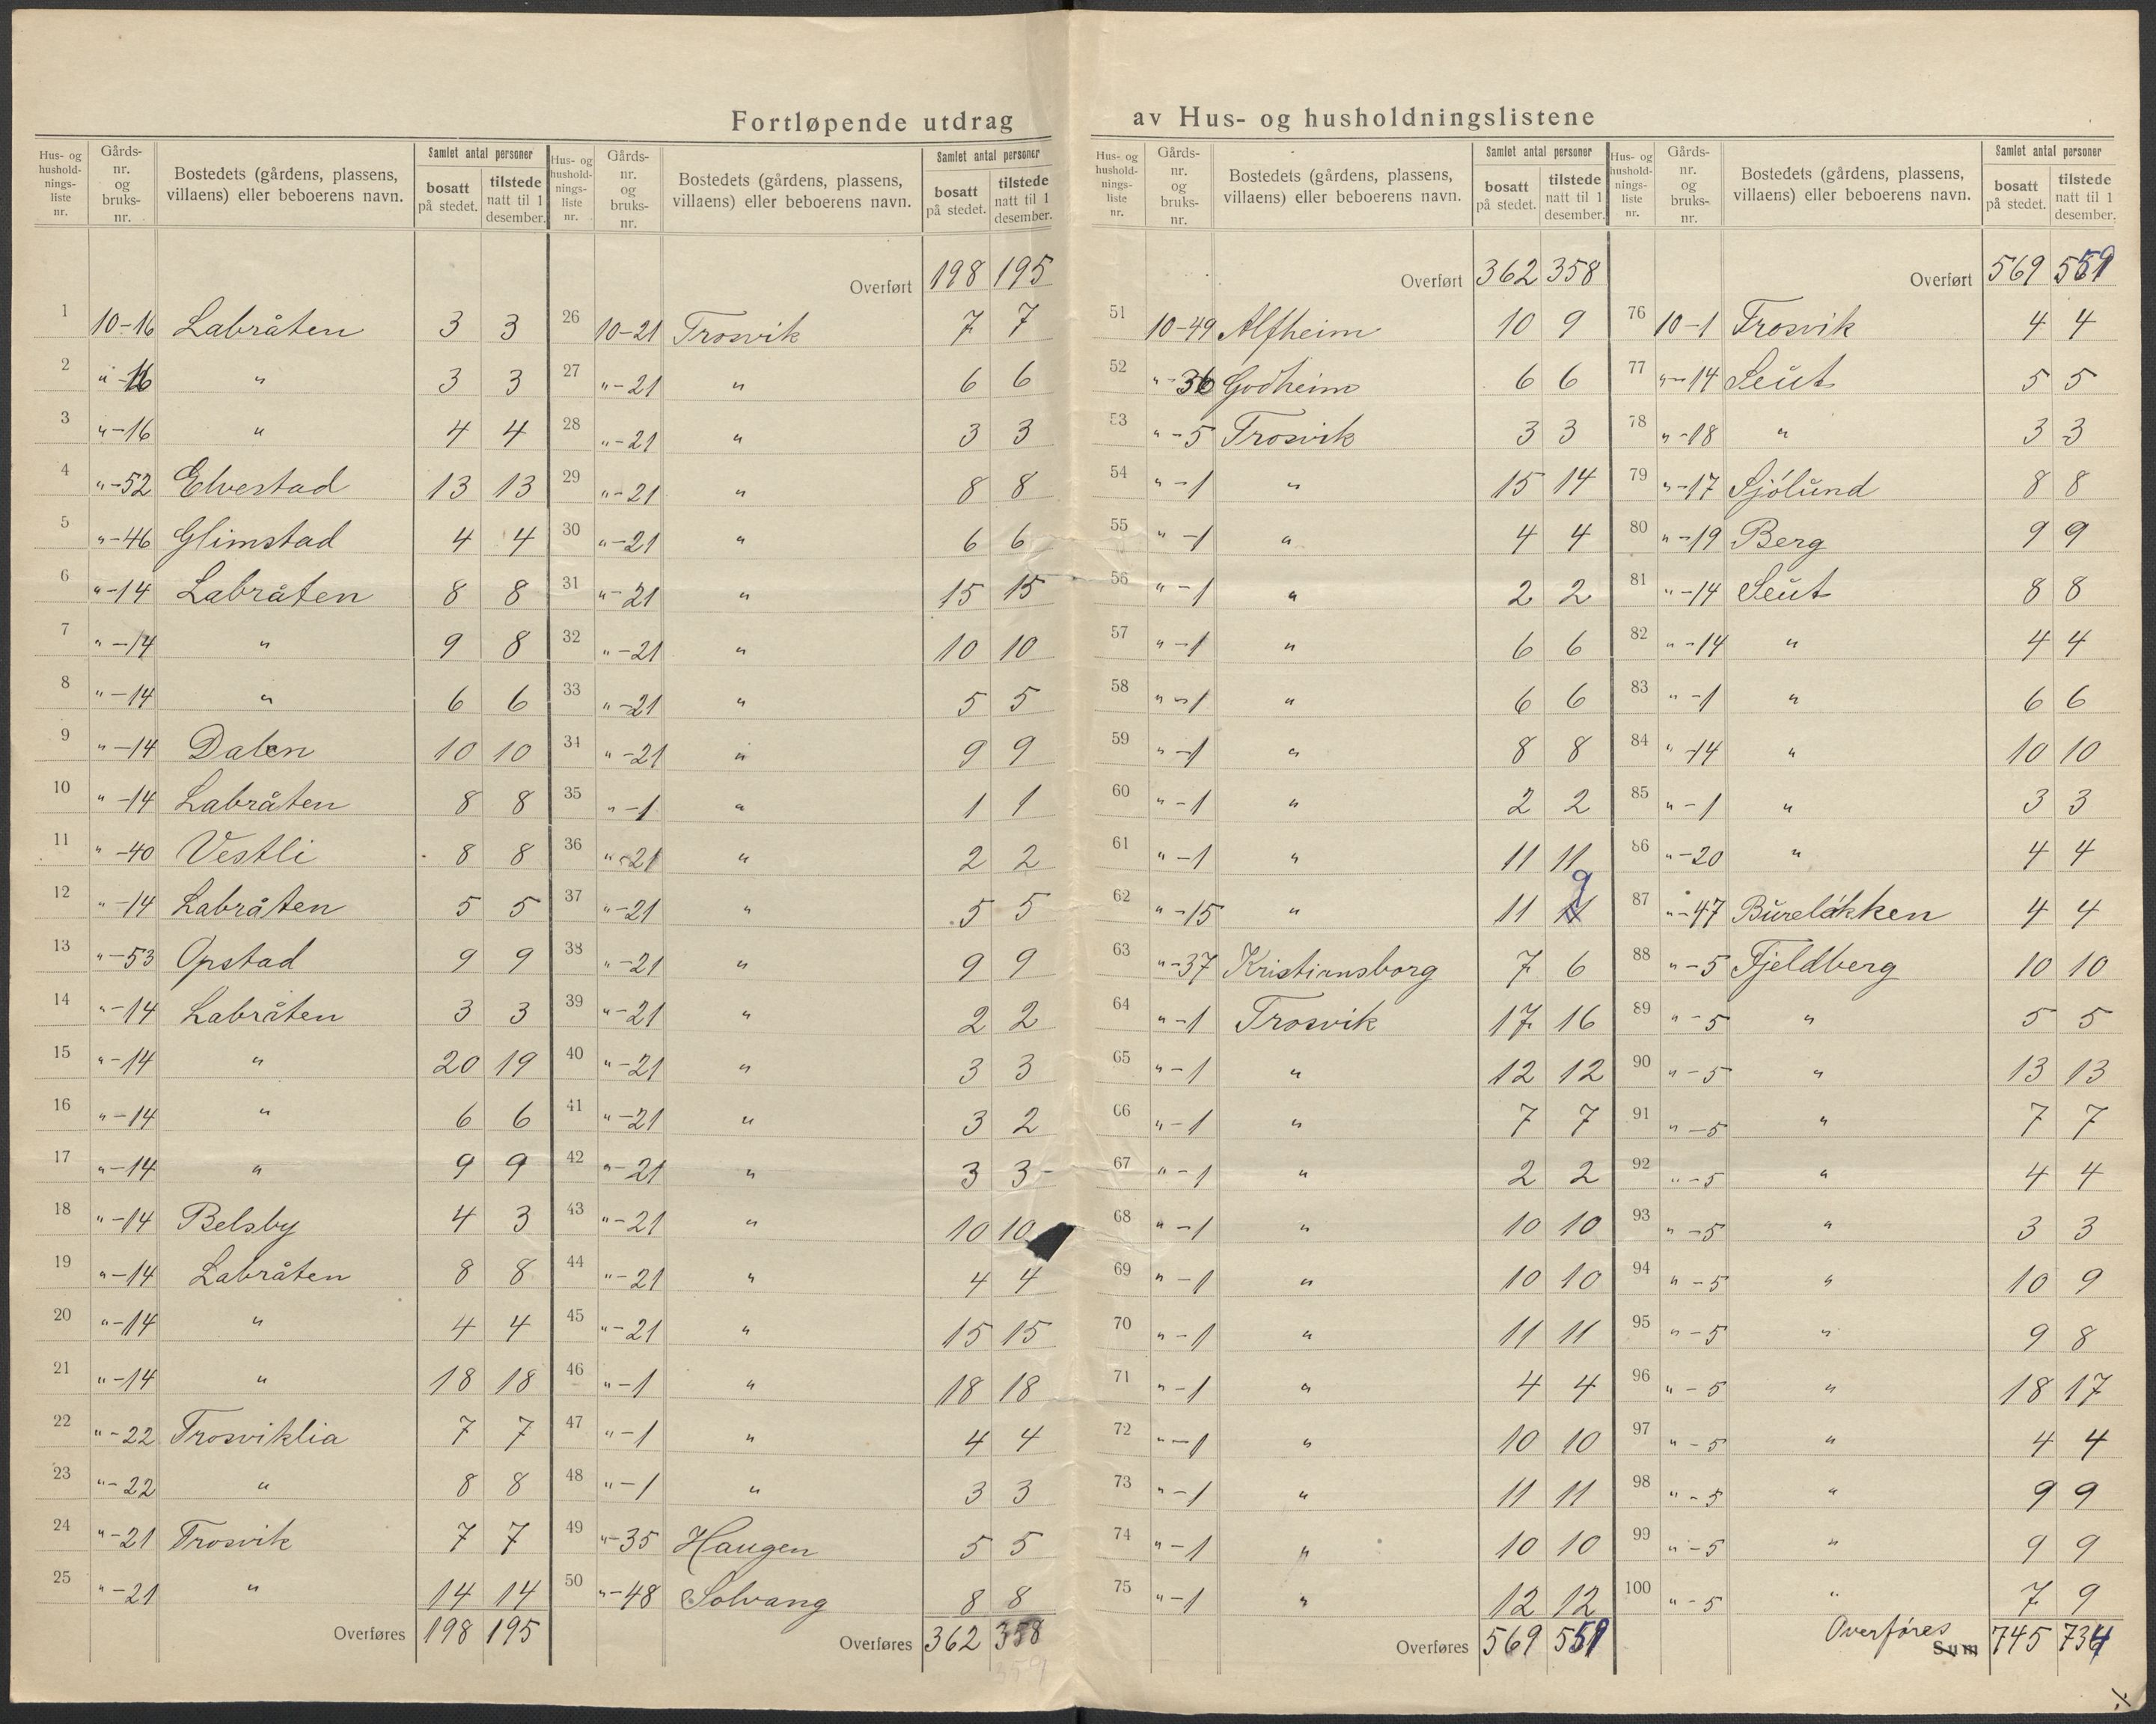 Fortløpende utdrag av Hus- og husholdningslistene
Hus- og hushold-nings-liste nr. | Gårds-nr. og bruks-nr. | Bostedets (gårdens, plassens, villaens) eller beboerens navn. | Samlet antal personer | bosatt på stedet. | tilstede natt til 1 desember.
1 10-16 Labråten 3 3
2 " -16 " 3 3
3 " -16 " 4 4
4 " -52 Elvestad 13 13
5 " -46 Glimstad 4 4
6 " -14 Labråten 8 8
7 " -14 " 9 8
8 " -14 " 6 6
9 " -14 Dalen 10 10
10 " -14 Labråten 8 8
11 " -40 Vestli 8 8
12 " -14 Labråten 5 5
13 " -53 Opstad 9 9
14 " -14 Labråten 3 3
15 " -14 " 20 19
16 " -14 " 6 6
17 " -14 " 9 9
18 " -14 Belsby 4 3
19 " -14 Labråten 8 8
20 " -14 " 4 4
21 " -14 " 18 18
22 " -22 Trosviklia 7 7
23 " -22 " 8 8
24 " -21 Trosvik 7 7
25 " -21 " 14 14
Overføres 198 195
Hus- og hushold-nings-liste nr. | Gårds-nr. og bruks-nr. | Bostedets (gårdens, plassens, villaens) eller beboerens navn. | Samlet antal personer | bosatt på stedet. | tilstede natt til 1 desember.
Overført 198 195
26 10-21 Trosvik 7 7
27 " -21 " 6 6
28 " -21 " 3 3
29 " -21 " 8 8
30 " -21 " 6 6
31 " -21 " 15 15
32 " -21 " 10 10
33 " -21 " 5 5
34 " -21 " 9 9
35 " -1 " 1 1
36 " -21 " 2 2
37 " -21 " 5 5
38 " -21 " 9 9
39 " -21 " 2 2
40 " -21 " 3 3
41 " -21 " 3 2
42 " -21 " 3 3
43 " -21 " 10 10
44 " -21 " 4 4
45 " -21 " 15 15
46 " -1 " 18 18
47 " -1 " 4 4
48 " -1 " 3 3
49 " -35 Haugen 5 5
50 " -48 Solvang 8 8
Overføres 362 358
359
Hus- og hushold-nings-liste nr. | Gårds-nr. og bruks-nr. | Bostedets (gårdens, plassens, villaens) eller beboerens navn. | Samlet antal personer | bosatt på stedet. | tilstede natt til 1 desember.
Overført 362 358
51 10-49 Alfheim 10 9
52 " -36 Godheim 6 6
53 " -5 Trosvik 3 3
54 " -1 " 15 14
55 " -1 " 4 4
56 " -1 " 2 2
57 " -1 " 6 6
58 " -1 " 6 6
59 " -1 " 8 8
60 " -1 " 2 2
61 " -1 " 11 11
62 " -15 " 11 9
63 " -37 Kristiansborg 7 6
64 " -1 Trosvik 17 16
65 " -1 " 12 12
66 " -1 " 7 7
67 " -1 " 2 2
68 " -1 " 10 10
69 " -1 " 10 10
70 " -1 " 11 11
71 " -1 " 4 4
72 " -1 " 10 10
73 " -1 " 11 11
74 " -1 " 10 10
75 " -1 " 12 12
Overføres 569 559
Hus- og hushold-nings-liste nr. | Gårds-nr. og bruks-nr. | Bostedets (gårdens, plassens, villaens) eller beboerens navn. | Samlet antal personer | bosatt på stedet. | tilstede natt til 1 desember.
Overført 569 559
76 10-1 Trosvik 4 4
77 " -14 Seut 5 5
78 " -18 " 3 3
79 " -17 Sjölund 8 8
80 " -19 Berg 9 9
81 " -14 Seut 8 8
82 " -14 " 4 4
83 " -1 " 6 6
84 " -14 " 10 10
85 " -1 " 3 3
86 " -20 " 4 4
87 " -47 Bureløkken 4 4
88 " -5 Fjeldberg 10 10
89 " -5 " 5 5
90 " -5 " 13 13
91 " -5 " 7 7
92 " -5 " 4 4
93 " -5 " 3 3
94 " -5 " 10 9
95 " -5 " 9 8
96 " -5 " 18 17
97 " -5 " 4 4
98 " -5 " 9 9
99 " -5 " 9 9
100 " -5 " 7 9
Overføres Sum 745 734